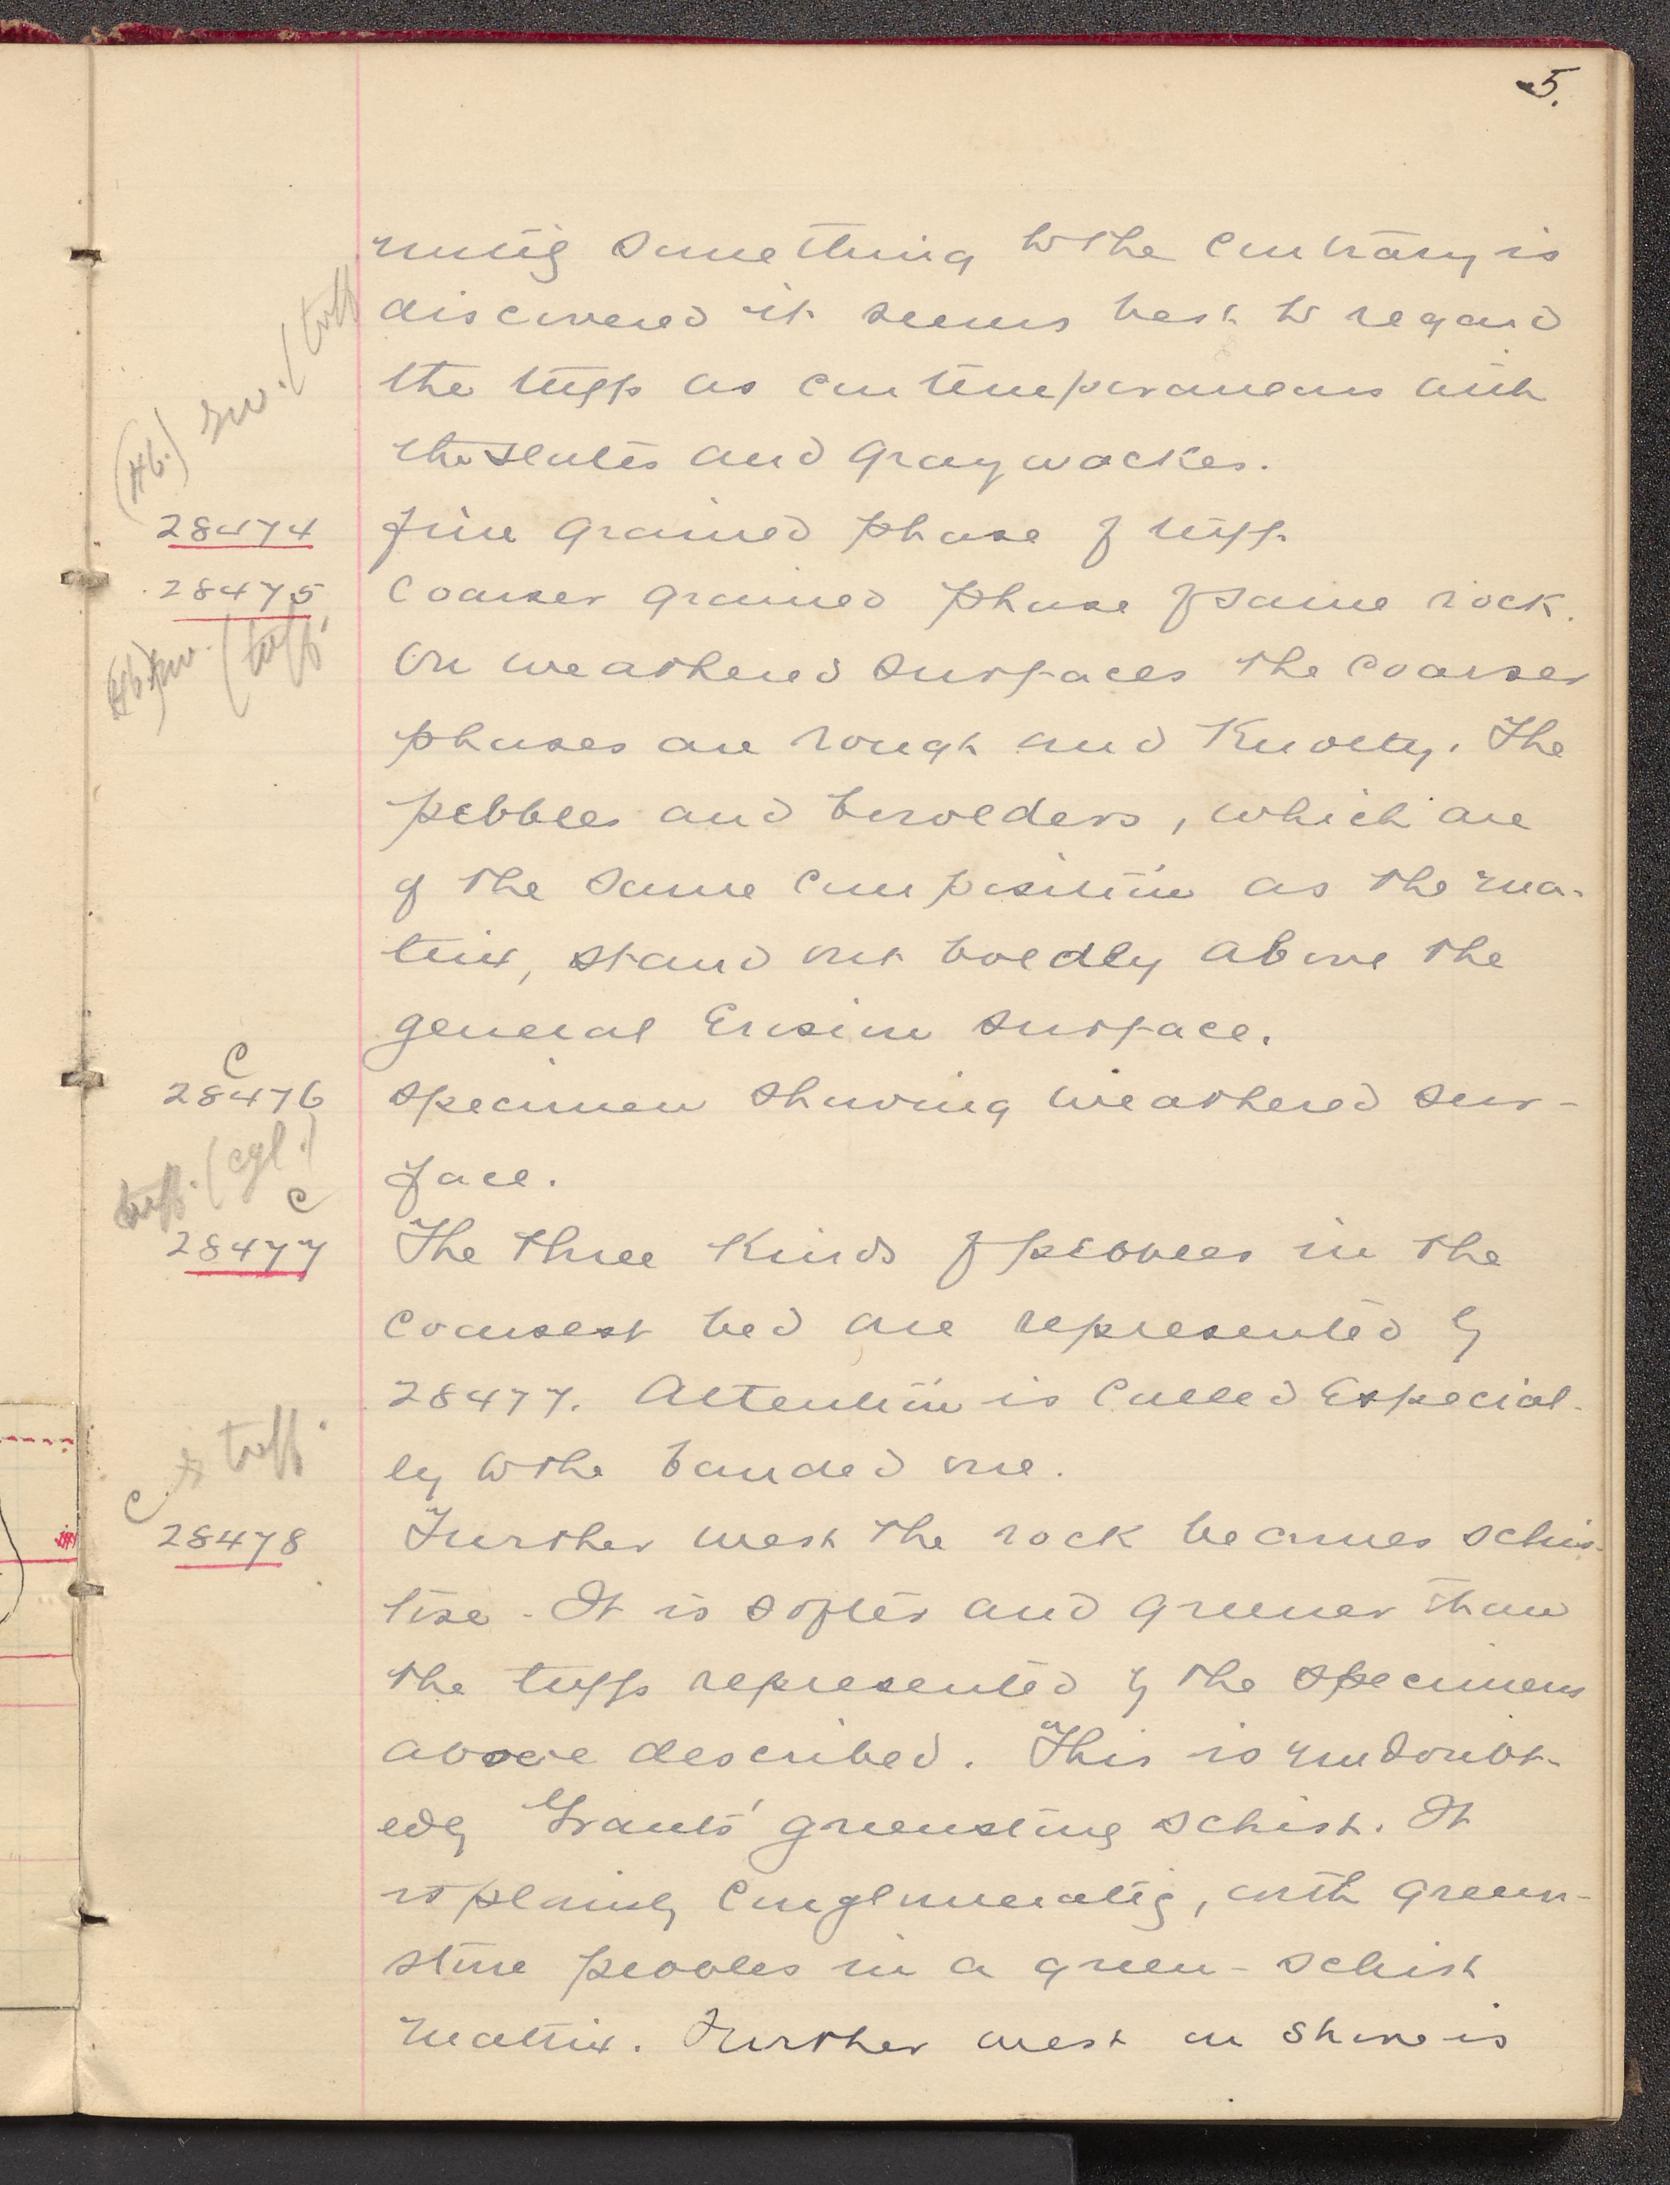 5.
until something to the contrary is
discovered it seems best to regard
the tuffs as contemporaneous with
the slates and graywackes.
(Hb.) gw. (tuff
28474 Fine grained phase of tuff.
28475 Coarser grained phase of same rock.
(Hb) gw. (tuff.
On weathered surfaces the coarser
phases are rough and knotty. The
pebbles and bowlders, which are
of the same composition as the ma-
trix, stand out boldly above the
general erosion surface.
C
28476 Specimen showing weathered sur-
face.
tuff. (cgl.)
C
28477 The three kinds of pebbles in the
coarsest bed are represented by
28477. Attention is called especial-
ly to the banded one.
tuff.
C
28478 Further west the rock becomes schis-
tose. It is softer and greener than
the tuffs represented by the specimens
above described. This is undoubt-
edly Grant's greenstone schist. It
is plainly conglomeratic, with green-
stone pebbles in a green-schist
matrix. Further west on shore is